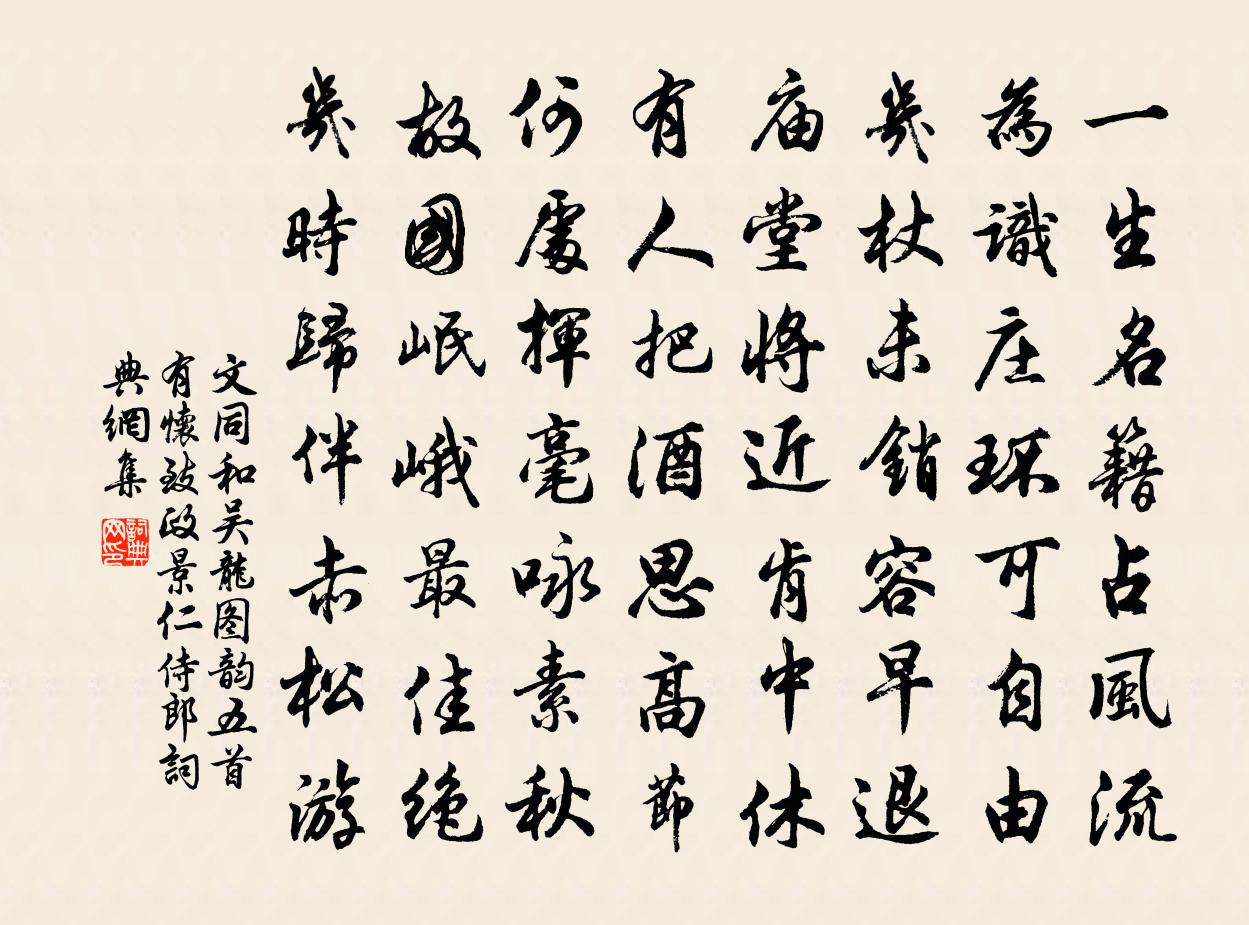 一生名籍占風流
為識庄環可自由
幾杖未銷容早退
庙堂將近肯中休
有人把酒思高節
何處揮毫咏素秋
故國岷峨最佳绝
幾時歸伴赤松游
文同和吴龍图韵五首
有懷致政景仁侍郎詞
典網集
詞典
网印